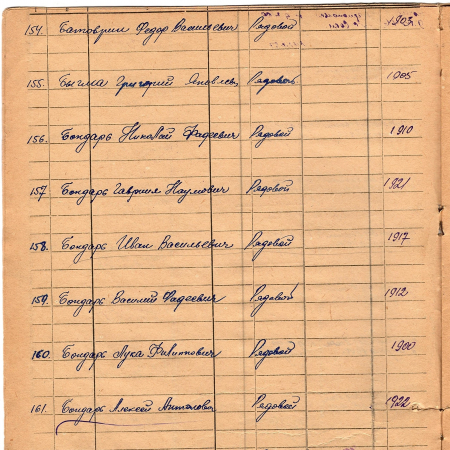 154. Батоврин Федор Васильевич Рядовой 1903
155. Быгма Григорий Яковлевич Рядовой 1905
156. Бондарь Николай Фадеевич Рядовой 1910
157 Бондарь Гаврил Наумович Рядовой 1921
158. Бондарь Иван Васильевич Рядовой 1917
159. Бондарь Василий Фадеевич Рядовой 1912
160. Бондарь Лука Филиппович Рядовой 1900
161. Бондарь Алексей Антонович Рядовой 1922